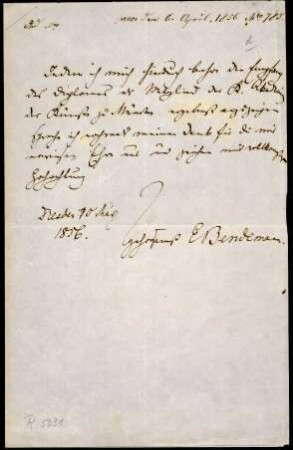 vom 6. April, 1856. No 785.
Indem ich mich hiedurch beehre den Empfang
des Diploms als Mitglied der K. Akademie
der Künste zu München ergebenst anzuzeigen
spreche ich nochmals meinen Dank für die mir
erwiesene Ehre aus und zeichne mit vollkommenster
Hochachtung
Dresden 10
1856.
E Bendemann
R. 5031